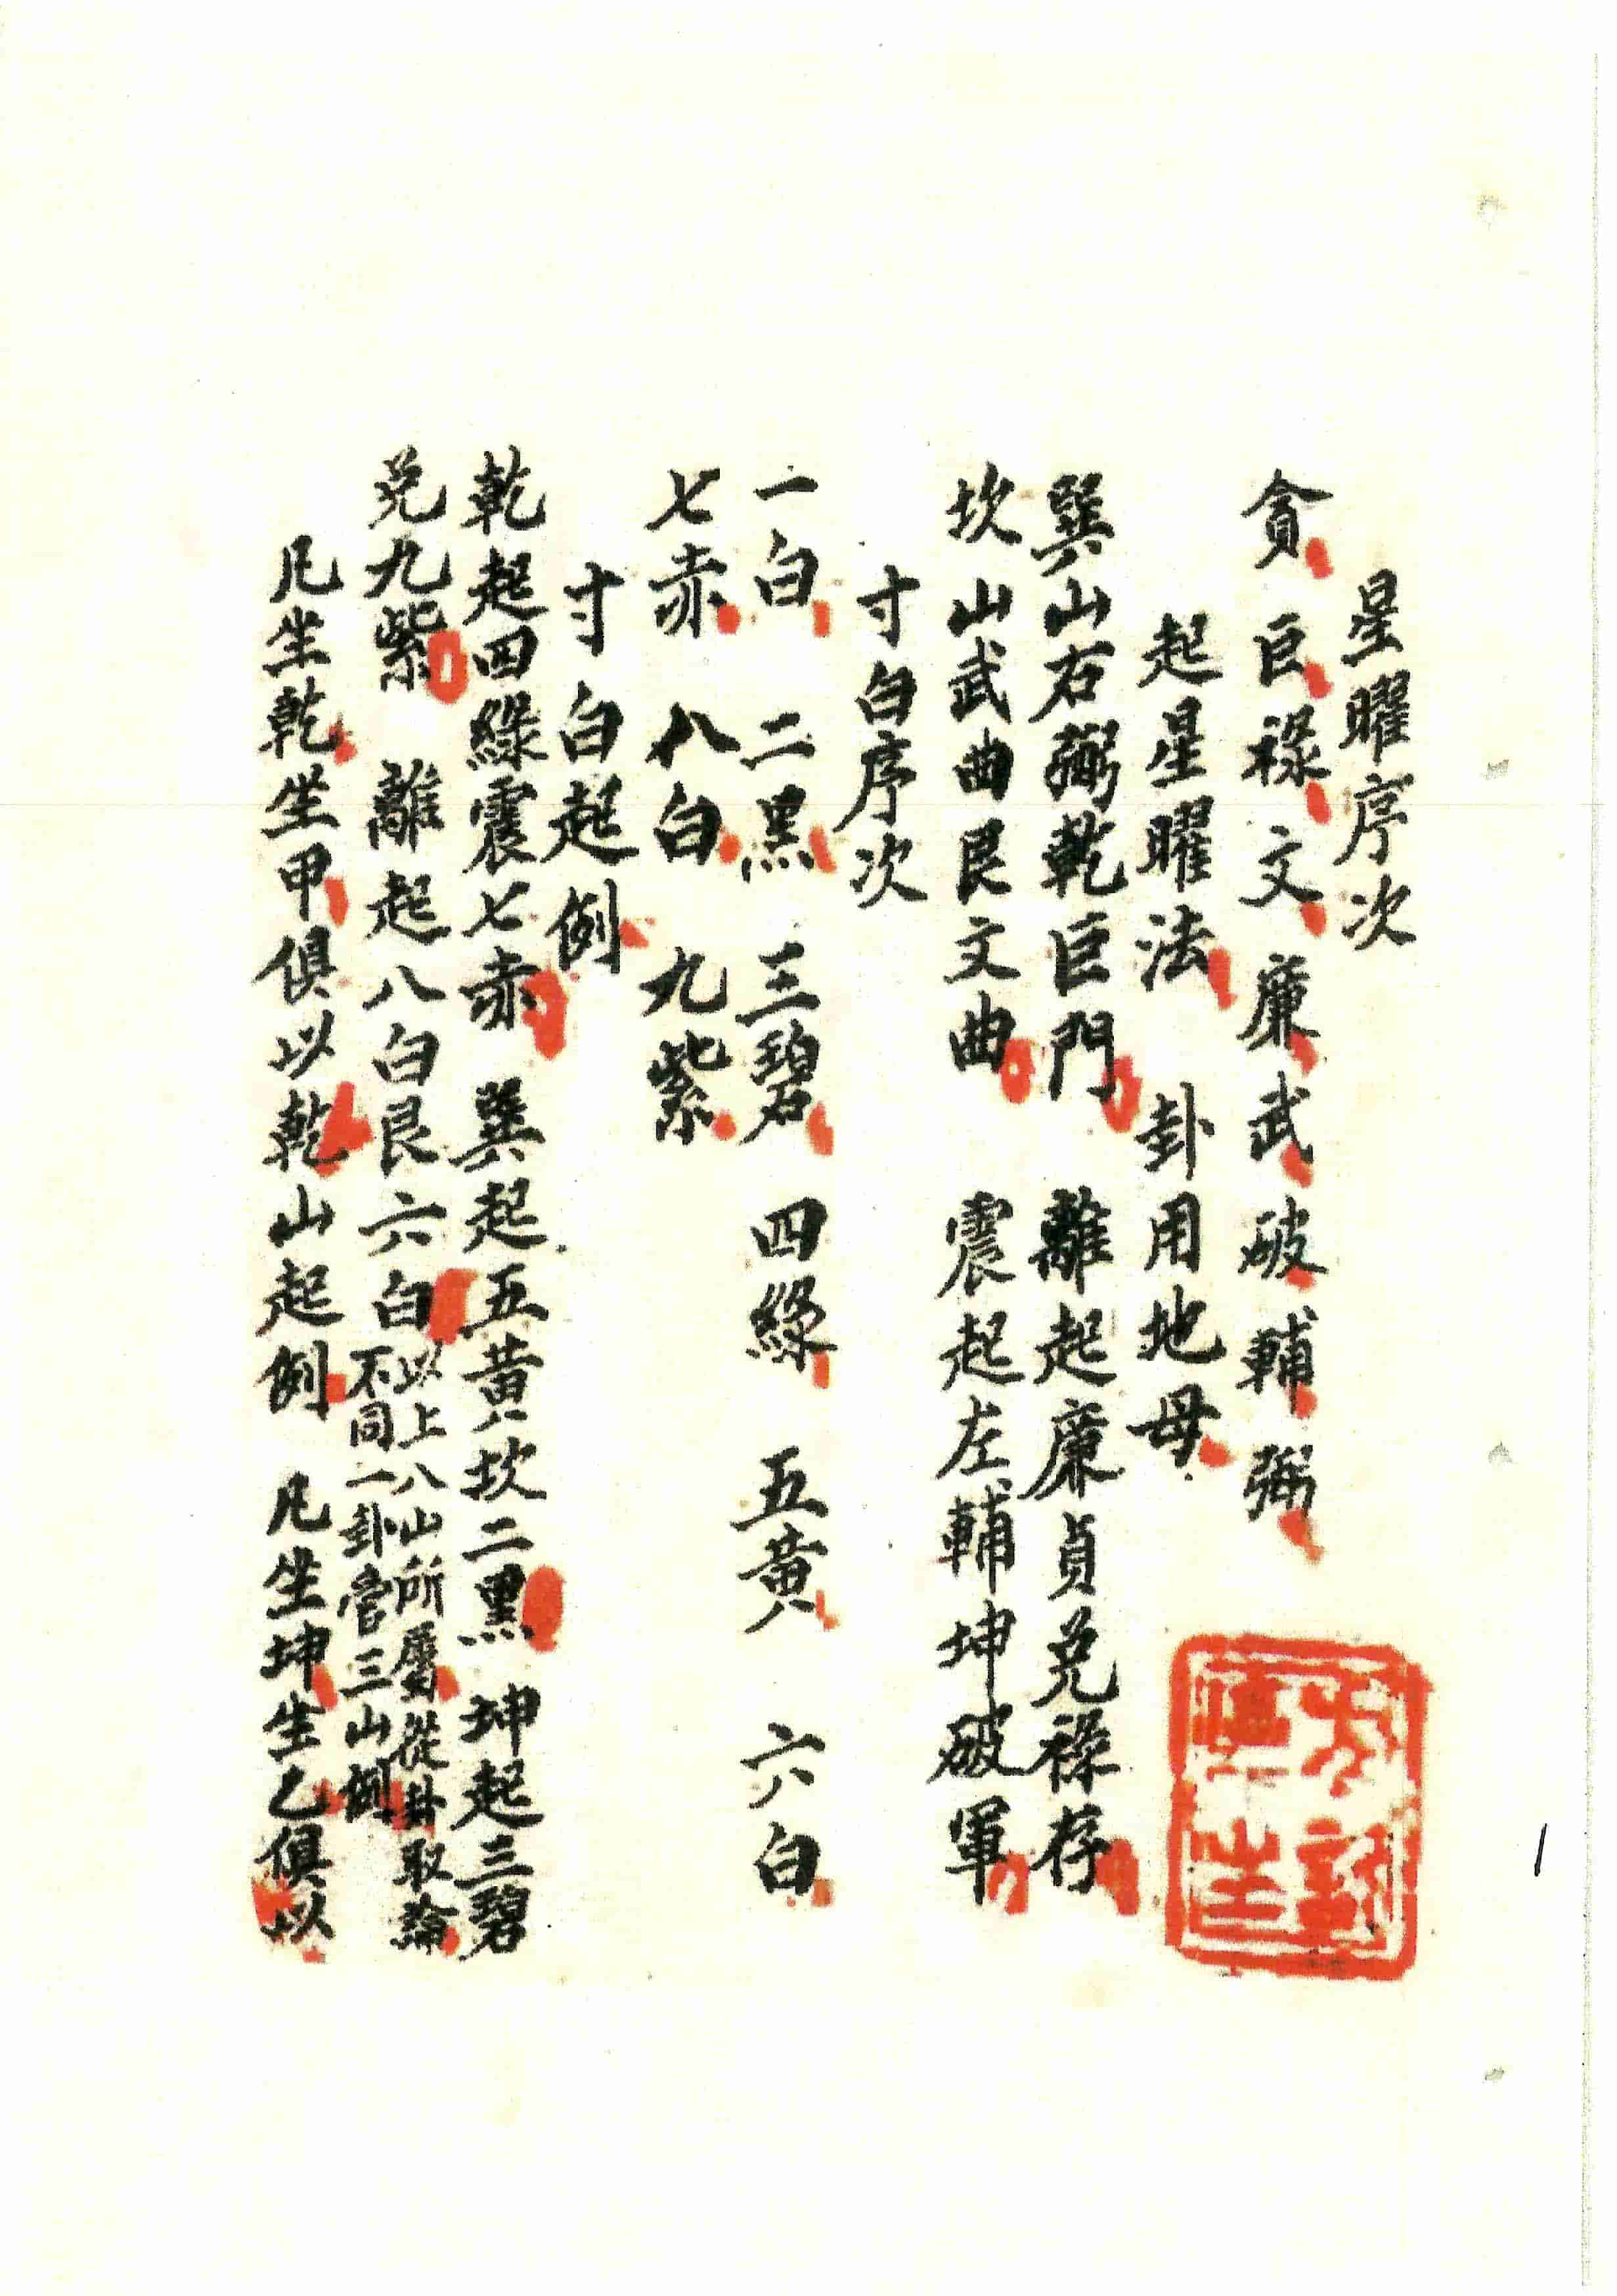 星曜序次
貪 巨 祿 文 廉 武 破 輔 弼
起星曜法 卦用地母
巽山右弼乾巨門 離起廉貞兌祿存
坎山武曲艮文曲 震起左輔坤破軍
寸白序次
一白 二黑 三碧 四綠 五黃 六白
七赤 八白 九紫
寸白起例
乾起四綠震七赤 巽起五黃坎二黑 坤起三碧
兌九紫 離起八白艮六白
以上八山所屬從卦取論
不同一卦管三山例
凡坐乾坐甲俱以乾山起例 凡坐坤坐乙俱以
1